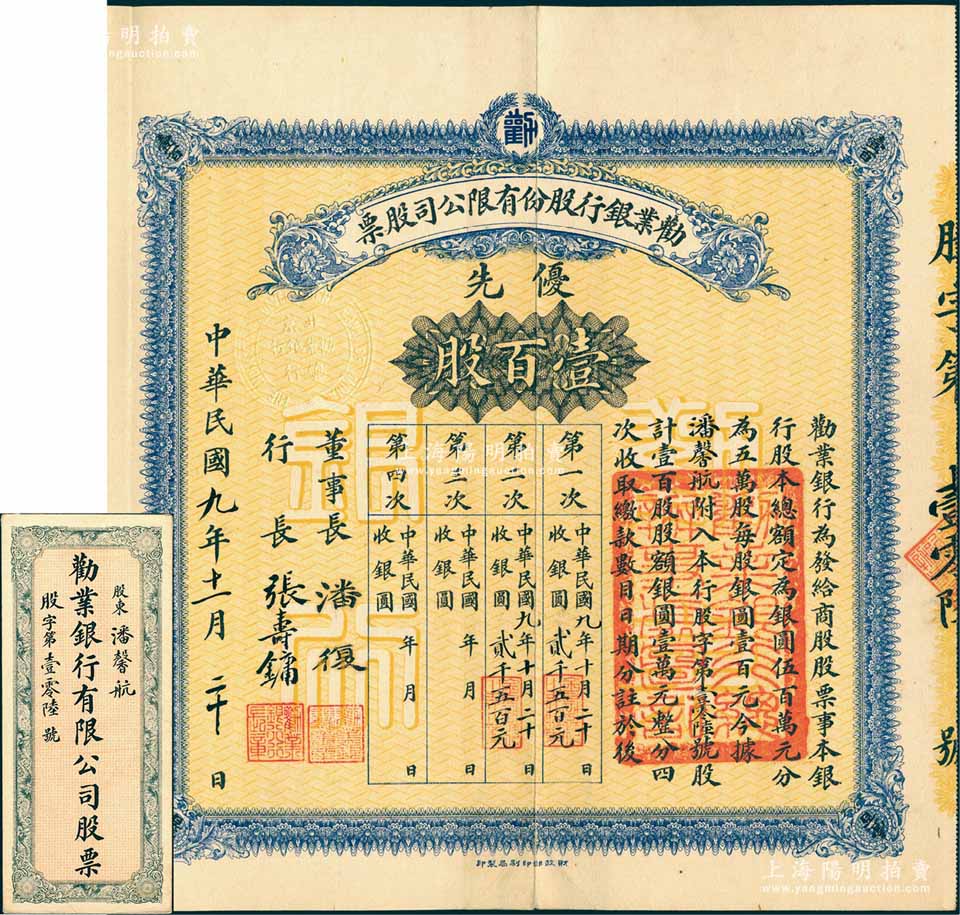 勸
勸業銀行股份有限公司股票
優先
壹百股
勸業銀行為發給商股股票事本銀
行股本總額定為銀圓伍百萬元分
為五萬股每股銀圓壹百元今據
潘馨航附入本行股字第壹零陸號股
計壹百股股額銀圓壹萬元整分四
次收取繳款數目日期分註於後
第一次 中華民國九年十月二十日
收銀圓貳千五百元
第二次 中華民國九年十月二十日
收銀圓貳千五百元
第三次 中華民國 年 月 日
收銀圓
第四次 中華民國 年 月 日
收銀圓
董事長 潘復
行長 張壽鏞
中華民國九年十一月二十日
財政部印刷局製印
股字第壹零陸號
股東 潘馨航
勸業銀行有限公司股票
股字第壹零陸號
上海陽明拍賣
www.yangmingauction.com